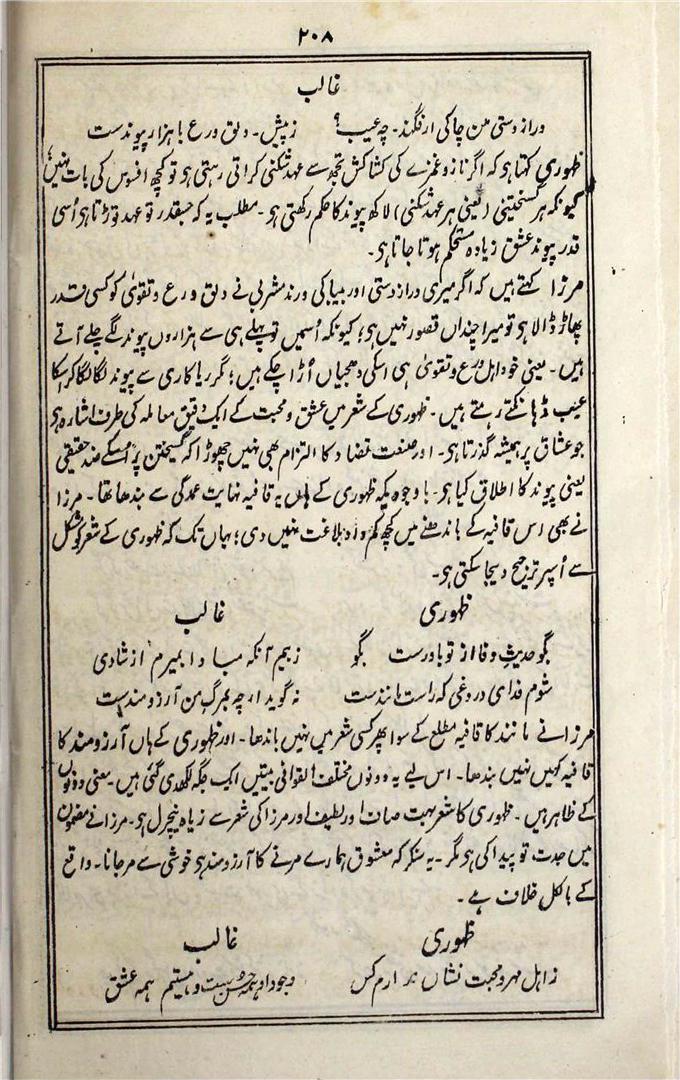 ۲۰۸
غالب
دراز دستی من چاکی ار فگند۔ چہ عیب؟ ز پیش۔ دلق ورع با ہزار پیوندست
ظہوری کہتا ہو کہ اگر ناز و غمزے کی کشاکش تجھ سے عہد شکنی کراتی رہتی ہو تو کچھ افسوس کی بات نہیں؛
کیونکہ ہر گسختنی (یعنی ہر عہد شکنی) لاکھ پیوند کا حکم رکھتی ہو۔ مطلب یہ کہ جسقدر تو عہد توڑتا ہو اُسی
قدر پیوند عشق زیادہ مستحکم ہوتا جاتا ہو۔
مرزا کہتے ہیں کہ اگر میری دراز دستی اور بیباکی و رند مشربی نے دلق ورع و تقویٰ کو کسی قدر
پھاڑ ڈالا ہو تو میرا چنداں قصور نہیں ہو؛ کیونکہ اُسمیں تو پہلے ہی سے ہزاروں پیوند لگے چلے آتے
ہیں۔ یعنی خود اہل ورع و تقویٰ ہی اسکی دھجیاں اُڑا چکے ہیں؛ مگر ریاکاری سے پیوند لگا لگا کر اسکا
عیب ڈہانکتے رہتے ہیں۔ ظہوری کے شعر میں عشق و محبت کے ایک دقیق معاملہ کی طرف اشارہ ہو
جو عشاق پر ہمیشہ گذرتا ہو۔ اور صنعت تضاد کا التزام بھی نہیں چھوڑا کہ گسیختن پر اُسکے ضد حقیقی
یعنی پیوند کا اطلاق کیا ہو۔ باوجودیکہ ظہوری کے ہاں یہ قافیہ نہایت عمدگی سے بندھا تھا۔ مرزا
نے بھی اس قافیہ کے باندھنے میں کچھ کم داد بلاغت نہیں دی؛ یہاں تک کہ ظہوری کے شعر کو مشکل
سے اُسپر ترجیح دیجا سکتی ہو۔
ظہوری غالب
بگو حدیث وفا از تو باورست بگو ز بیم آنکہ مبادا بمیرم از شادی
شوم فدای دروغی کہ راست مانندست نہ گوید ار چہ بمرگ من آرزومندست
مرزا نے مانند کا قافیہ مطلع کے سوا پھر کسی شعر میں نہیں باندھا۔ اور ظہوری کے ہاں آرزومند کا
قافیہ کہیں نہیں بندھا۔ اس لیے یہ دونوں مختلف القوافی بیتیں ایک جگہ لکھدی گئی ہیں۔ معنی دونوں
کے ظاہر ہیں۔ ظہوری کا شعر بہت صاف اور لطیف اور مرزا کی شعر سے زیادہ نیچرل ہو۔ مرزا نے مضمون
میں جدت تو پیدا کی ہو مگر۔ یہ سنکر کہ معشوق ہمارے مرنے کا آرزومند ہو خوشی سے مرجانا۔ واقع
کے بالکل خلاف ہے۔
ظہوری غالب
ز اہل مہر و محبت نشاں ندارم کس وجود او ہمہ حسن ست و ہستیم ہمہ عشق